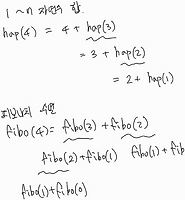 1 ~ n 자연수 합.
hap(4) = 4 + hap(3)
= 3 + hap(2)
= 2 + hap(1)
피보나치 수열
fibo(4) = fibo(3) + fibo(2)
fibo(2) + fibo(1) fibo(1) + fib
fibo(1) + fibo(0)